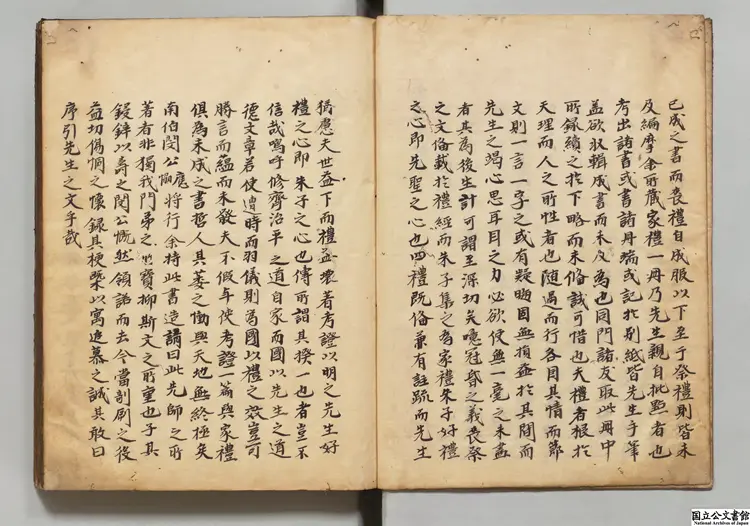 已成之書而喪禮自成服以下至于祭禮則皆未
及編摩余所藏家禮一冊乃先生親自批點者也
考出諸書或書諸冊端或記於別紙皆先生手筆
蓋欲收輯成書而未及為也同門諸友取此冊中
所錄續之於下略而未備誠可惜也夫禮者根於
天理而人之所性者也隨遇而行各因其情而節
文則一言一字之或有疑晦固無損益於其間而
先生之竭心思耳目之力必欲使無一毫之未盡
者其為後生計可謂至深切矣噫冠昏之義喪祭
之文備載於禮經而朱子集之為家禮朱子好禮
之心即先聖之心也四禮既備兼有註疏而先生
猶慮夫世益下而禮益壞著考證以明之先生好
禮之心即朱子之心也傳所謂其揆一也者豈不
信哉嗚呼修齊治平之道自家而國以先生之道
德文章若使遭時而羽儀則為國以禮之效豈可
勝言而蘊而未發天不假年使考證一篇與家禮
俱為未成之書哲人其萎之慟與天地無終極矣
南伯閔公應
將行余持此書造請曰此先師之所
著者非獨我門弟之所寶抑斯文之所望也子其
鋟梓以壽之閔公慨然領諾而去今當剞劂之役
益切傷惘之懷錄其梗槩以寓追慕之誠其敢曰
序引先生之文乎哉
国立公文書館
National Archives of Japan